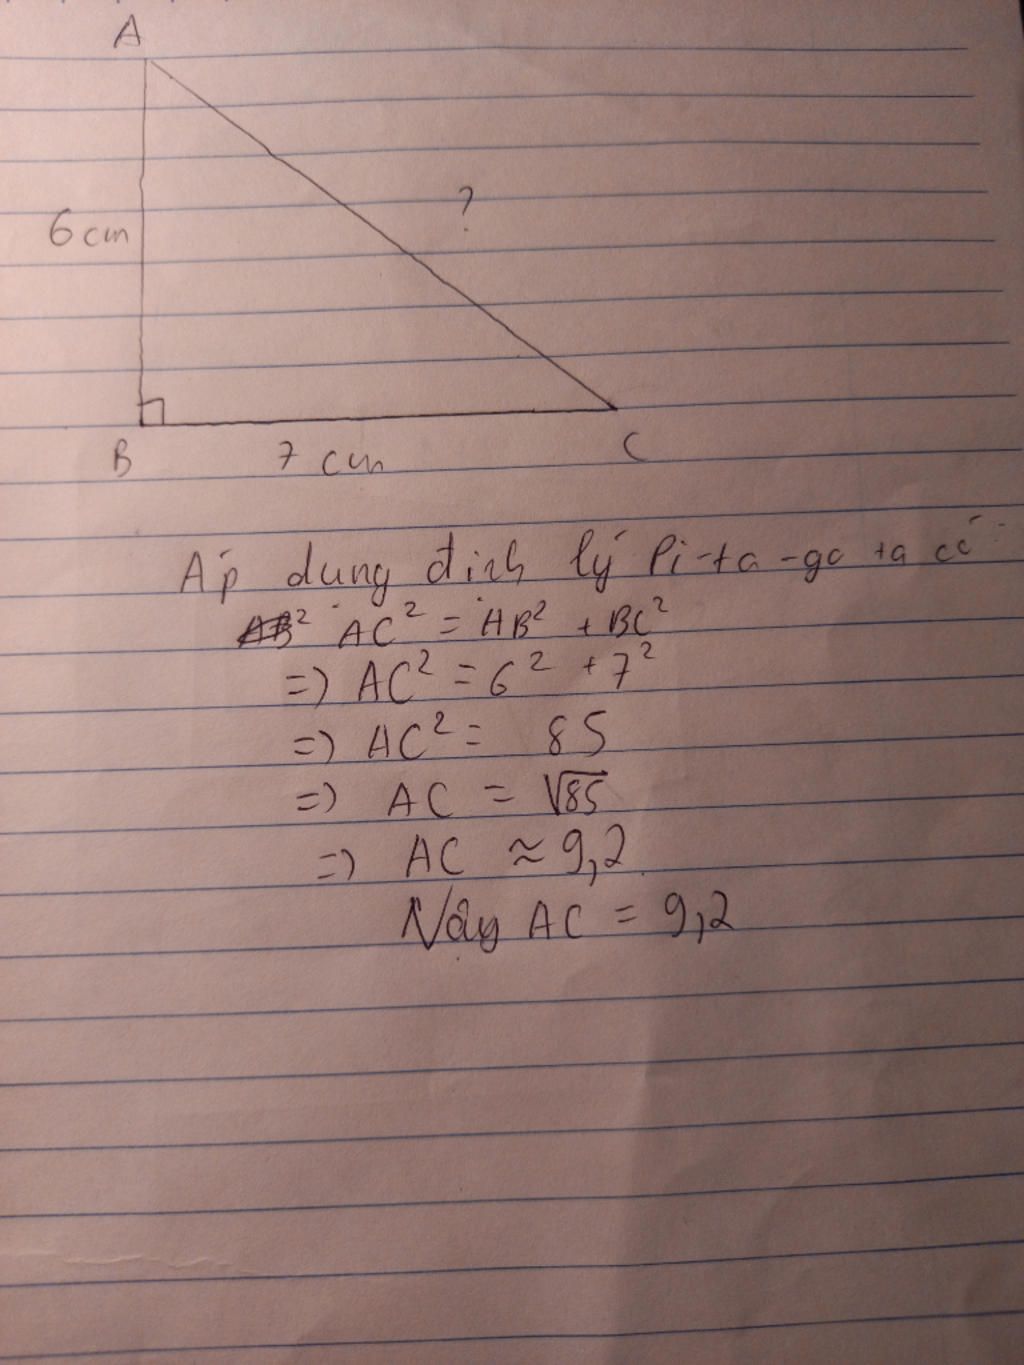 A
?
6 cm
B
7 cm
C
Áp dụng định lý Pi-ta-go ta có
AB² AC² = AB² + BC²
=) AC² = 6² + 7²
=) AC² = 85
=) AC = √85
=) AC ≈ 9,2
Vậy AC = 9,2